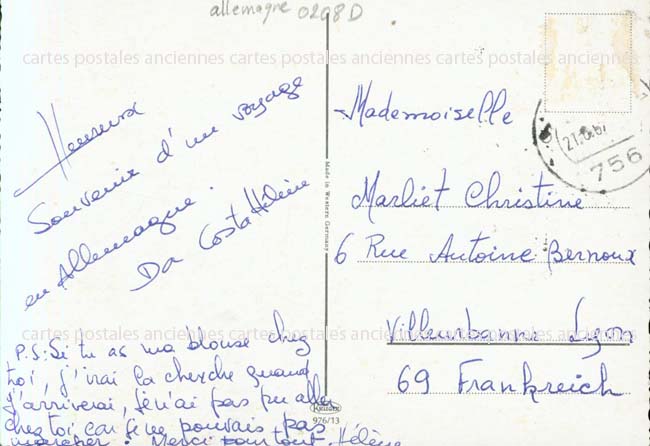 allemagne 0298D
cartes postales anciennes cartes postales anciennes
Heureux
Souvenir d'un voyage
en Allemagne.
Da Costa Hélène
P.S: Si tu as ma blouse chez
toi, j'irai la cherche quand
j'arriverai, je n'ai pas pu aller
chez toi car je ne pouvais pas
marcher. Merci pour tout. Hélène
Made in Western Germany
Krüger
976/13
21.6.67
756
Mademoiselle
Marliet Christine
6 Rue Antoine Bernoux
cartes postales anciennes cartes postales anciennes
Villeurbanne Lyon
69 Frankreich